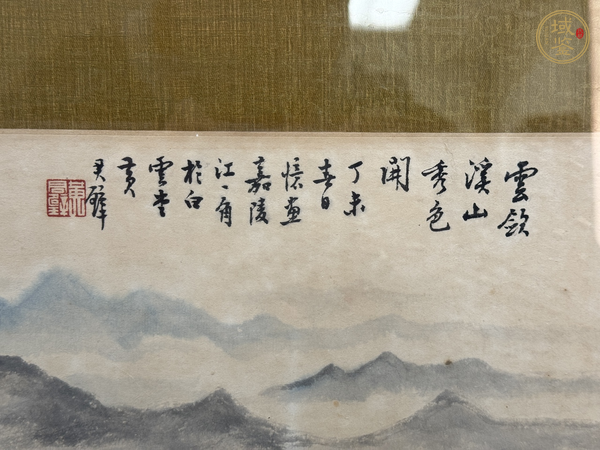 雲斂
溪山
秀色
開
丁未
春日
憶畫
嘉陵
江、角
於白
雲堂
黃
君璧
域鉴